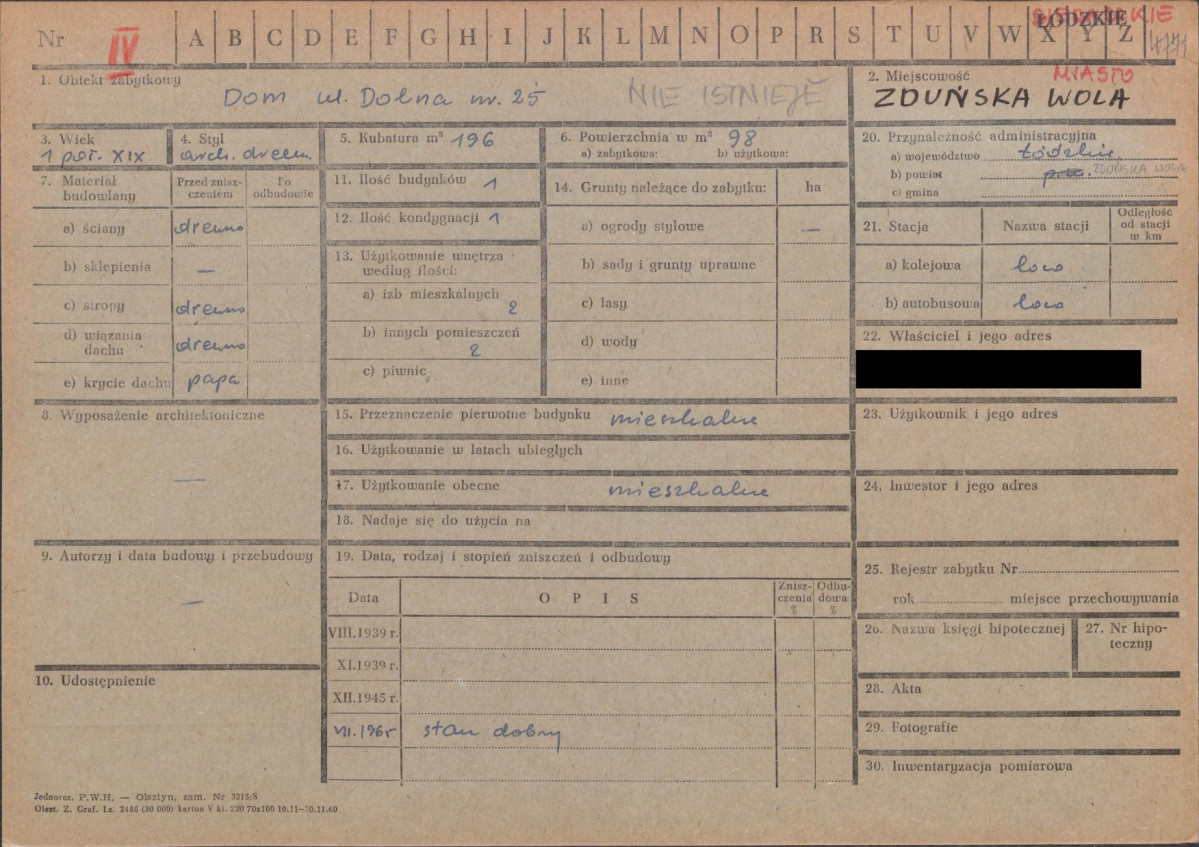 Nr IV A B C D E F G H I J K L M N O P R S T U V W X Y Z
ŁÓDZKIE
1. Obiekt zabytkowy
Dom ul. Dolna nr. 25
NIE ISTNIEJE
2. Miejscowość MIASTO
ZDUŃSKA WOLA
3. Wiek
1 poł. XIX
4. Styl
arch. drewn.
5. Kubatura m³ 196
6. Powierzchnia w m² 98
a) zabytkowa: b) użytkowa:
7. Materiał budowlany
Przed zniszczeniem
Po odbudowie
a) ściany drewno
b) sklepienia —
c) stropy drewno
d) wiązania dachu drewno
e) krycie dachu papa
8. Wyposażenie architektoniczne
—
9. Autorzy i data budowy i przebudowy
—
10. Udostępnienie
11. Ilość budynków 1
12. Ilość kondygnacji 1
13. Użytkowanie wnętrza
według ilości:
a) izb mieszkalnych
2
b) innych pomieszczeń
2
c) piwnic
14. Grunty należące do zabytku: ha
a) ogrody stylowe —
b) sady i grunty uprawne
c) lasy
d) wody
e) inne
15. Przeznaczenie pierwotne budynku mieszkalne
16. Użytkowanie w latach ubiegłych
17. Użytkowanie obecne mieszkalne
18. Nadaje się do użycia na
19. Data, rodzaj i stopień zniszczeń i odbudowy
Data OPIS Zniszczenia % Odbudowa %
VIII.1939 r.
XI.1939 r.
XII.1945 r.
VII.1965 stan dobry
20. Przynależność administracyjna
a) województwo łódzkie
b) powiat ZDUŃSKA WOLA
c) gmina
21. Stacja Nazwa stacji Odległość od stacji w km
a) kolejowa loco
b) autobusowa loco
22. Właściciel i jego adres
23. Użytkownik i jego adres
24. Inwestor i jego adres
25. Rejestr zabytku Nr
rok miejsce przechowywania
26. Nazwa księgi hipotecznej
27. Nr hipoteczny
28. Akta
29. Fotografie
30. Inwentaryzacja pomiarowa
Jednoraz. P.W.H. — Olsztyn, zam. Nr 3215/S
Olszt. Z. Graf. Lz. 2466 (30 000) karton V kl. 220 70x100 10.11—10.11.60